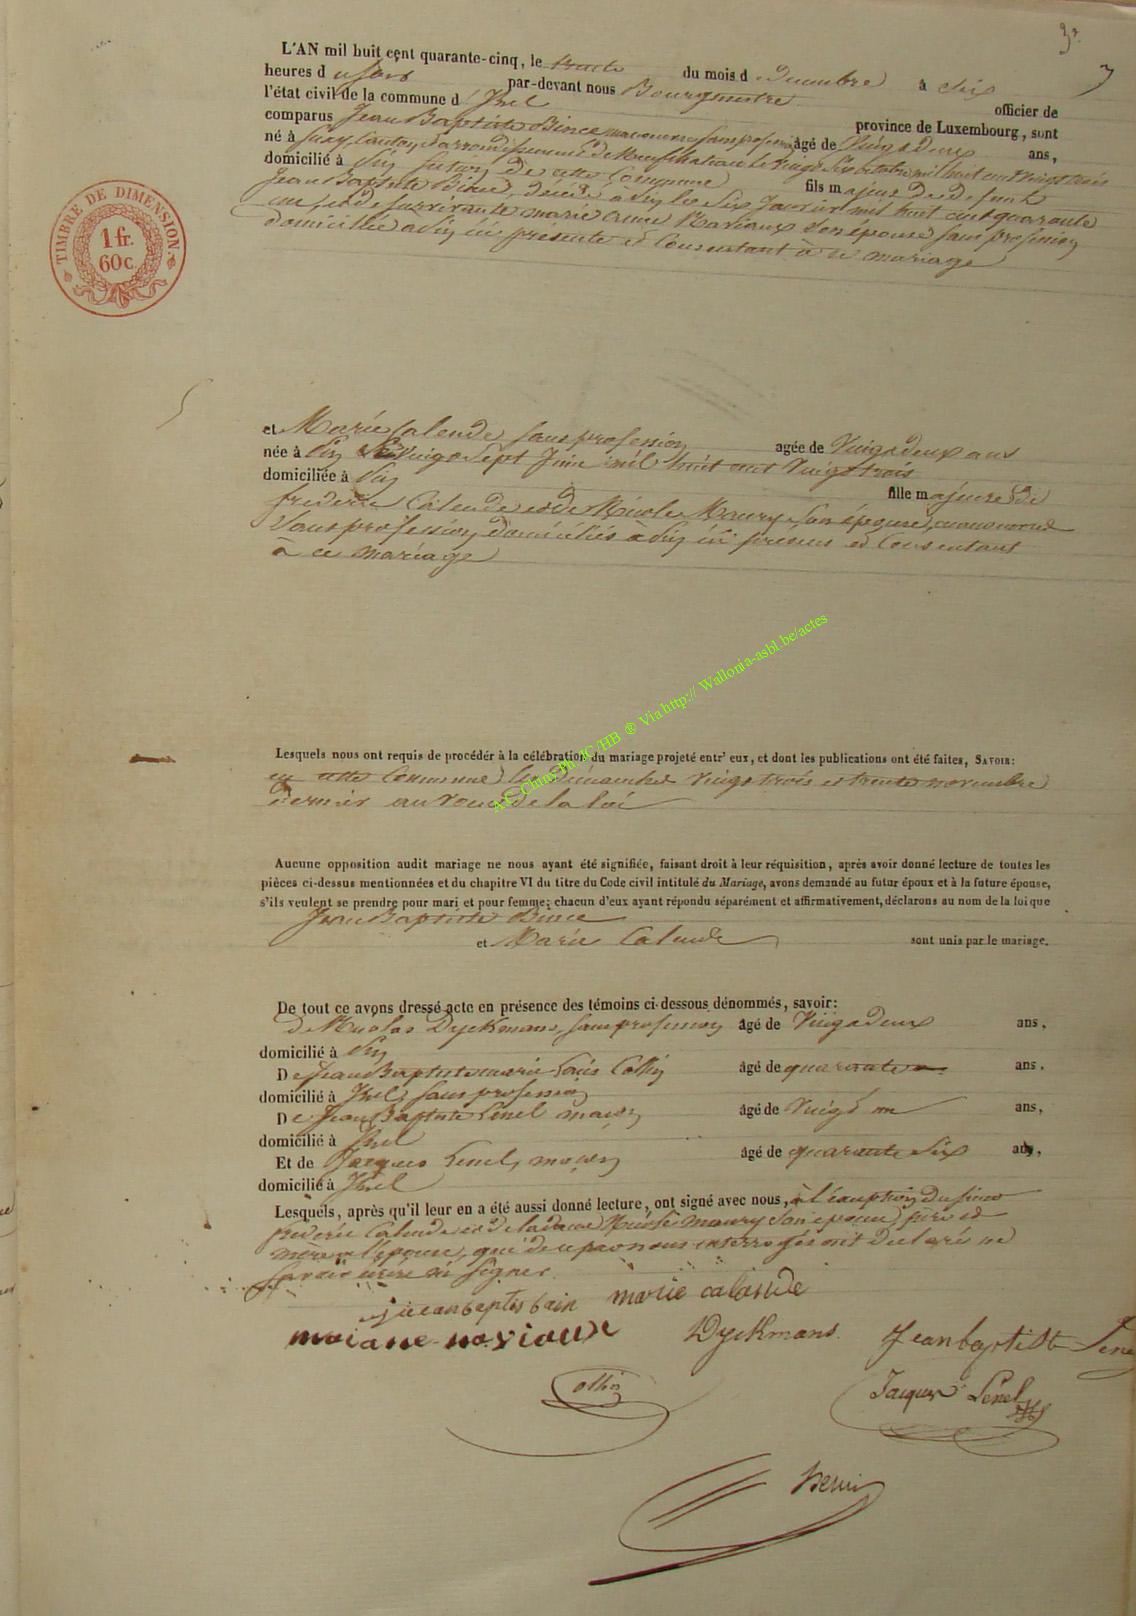 L'AN mil huit cent quarante-cinq, le trente du mois d decembre à six
heures d u soir par-devant nous Bourgmestre officier de
l'état civil de la commune d' Izel province de Luxembourg, sont
comparus Jean Baptiste Bince sans profession âgé de Vingt deux ans,
né à Suxy, Canton, d'arrondissement de Neufchateau le Vingt Six octobre mil huit cent Vingt trois
domicilié à section de cette Commune fils majeur de defunt
Jean Baptiste Bince, décédé à les Six Janvier mil huit cent quarante
et de survivante marie anne Mariaux son épouse sans profession
domiciliée a ici présente et Consentant à ce mariage
et Marie Calende sans profession agée de Vingt deux ans
née à le Vingt Sept Juin mil huit cent Vingt trois
domiciliée à fille majeure de
frederic Calende et de Nicole Maury son épouse,
Sans profession, domiciliés à ici présens et Consentant
à ce mariage
Lesquels nous ont requis de procéder à la célébration du mariage projeté entr' eux, et dont les publications ont été faites, SAVOIR:
en cette Commune les dimanches Vingt trois et trente novembre
dernier au voeu de la loi
Aucune opposition audit mariage ne nous ayant été signifiée, faisant droit à leur réquisition, après avoir donné lecture de toutes les
pièces ci-dessus mentionnées et du chapitre VI du titre du Code civil intitulé du Mariage, avons demandé au futur époux et à la future épouse,
s'ils veulent se prendre pour mari et pour femme; chacun d'eux ayant répondu séparément et affirmativement, déclarons au nom de la loi que
Jean Baptiste Bince
et Marie Calende sont unis par le mariage.
De tout ce avons dressé acte en présence des témoins ci-dessous dénommés, savoir:
De Nicolas Dyckmans, sans profession âgé de Vingt deux ans,
domicilié à
De Jean Baptiste marie Collin âgé de quarante ans,
domicilié à Izel, sans profession
De Jean Baptiste Lenel maçon âgé de Vingt un ans,
domicilié à Izel
Et de Jacques Lenel, maçon âgé de quarante six ans,
domicilié à Izel
Lesquels, après qu'il leur en a été aussi donné lecture, ont signé avec nous, à l'exception du sieur
frederic Calende et de la dame Nicole maury son épouse père et
mère de l'épouse, qui de ce par nous interrogés ont déclaré ne
savoir écrire ni signer.
jeeanbaptis bain marie calande
Dyckmans. Jean baptiste Lenel
Collin Jacques Lenel
Henri
TIMBRE DE DIMENSION.
1 fr.
60 c.
A.C. Chiny Ph. JC/HB ® Via http:// Wallonia-asbl.be/actes